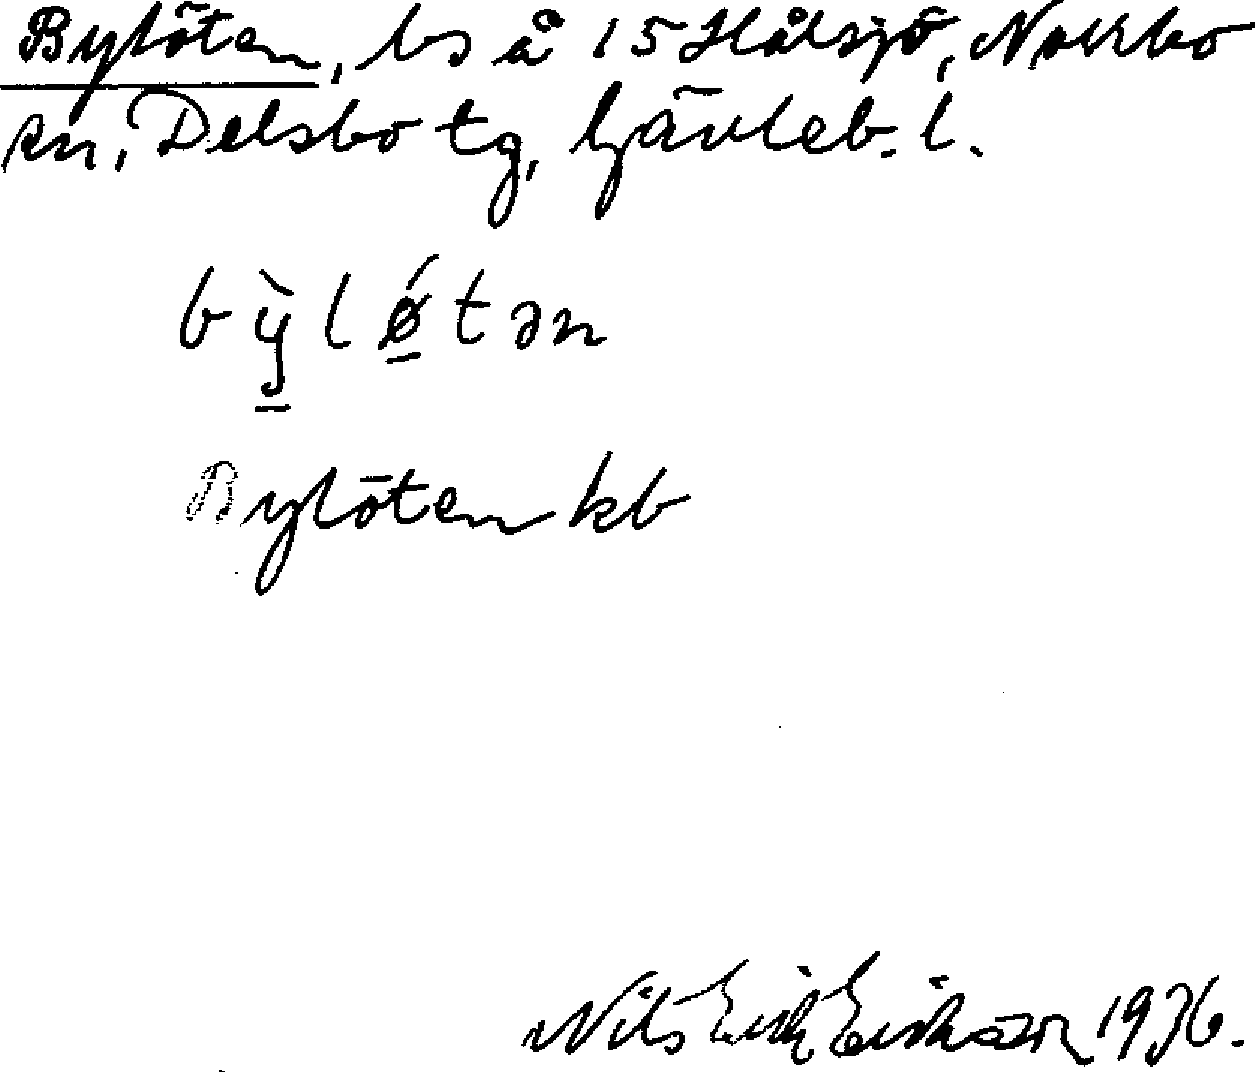 Bylöten, ls å 15 Hålsjö, Norrbo
sn, Delsbo tg, Gävleb. l.
bỳ̠lǿ̠tən
Bylöten kb
Nils Erik Eriksson 1936.